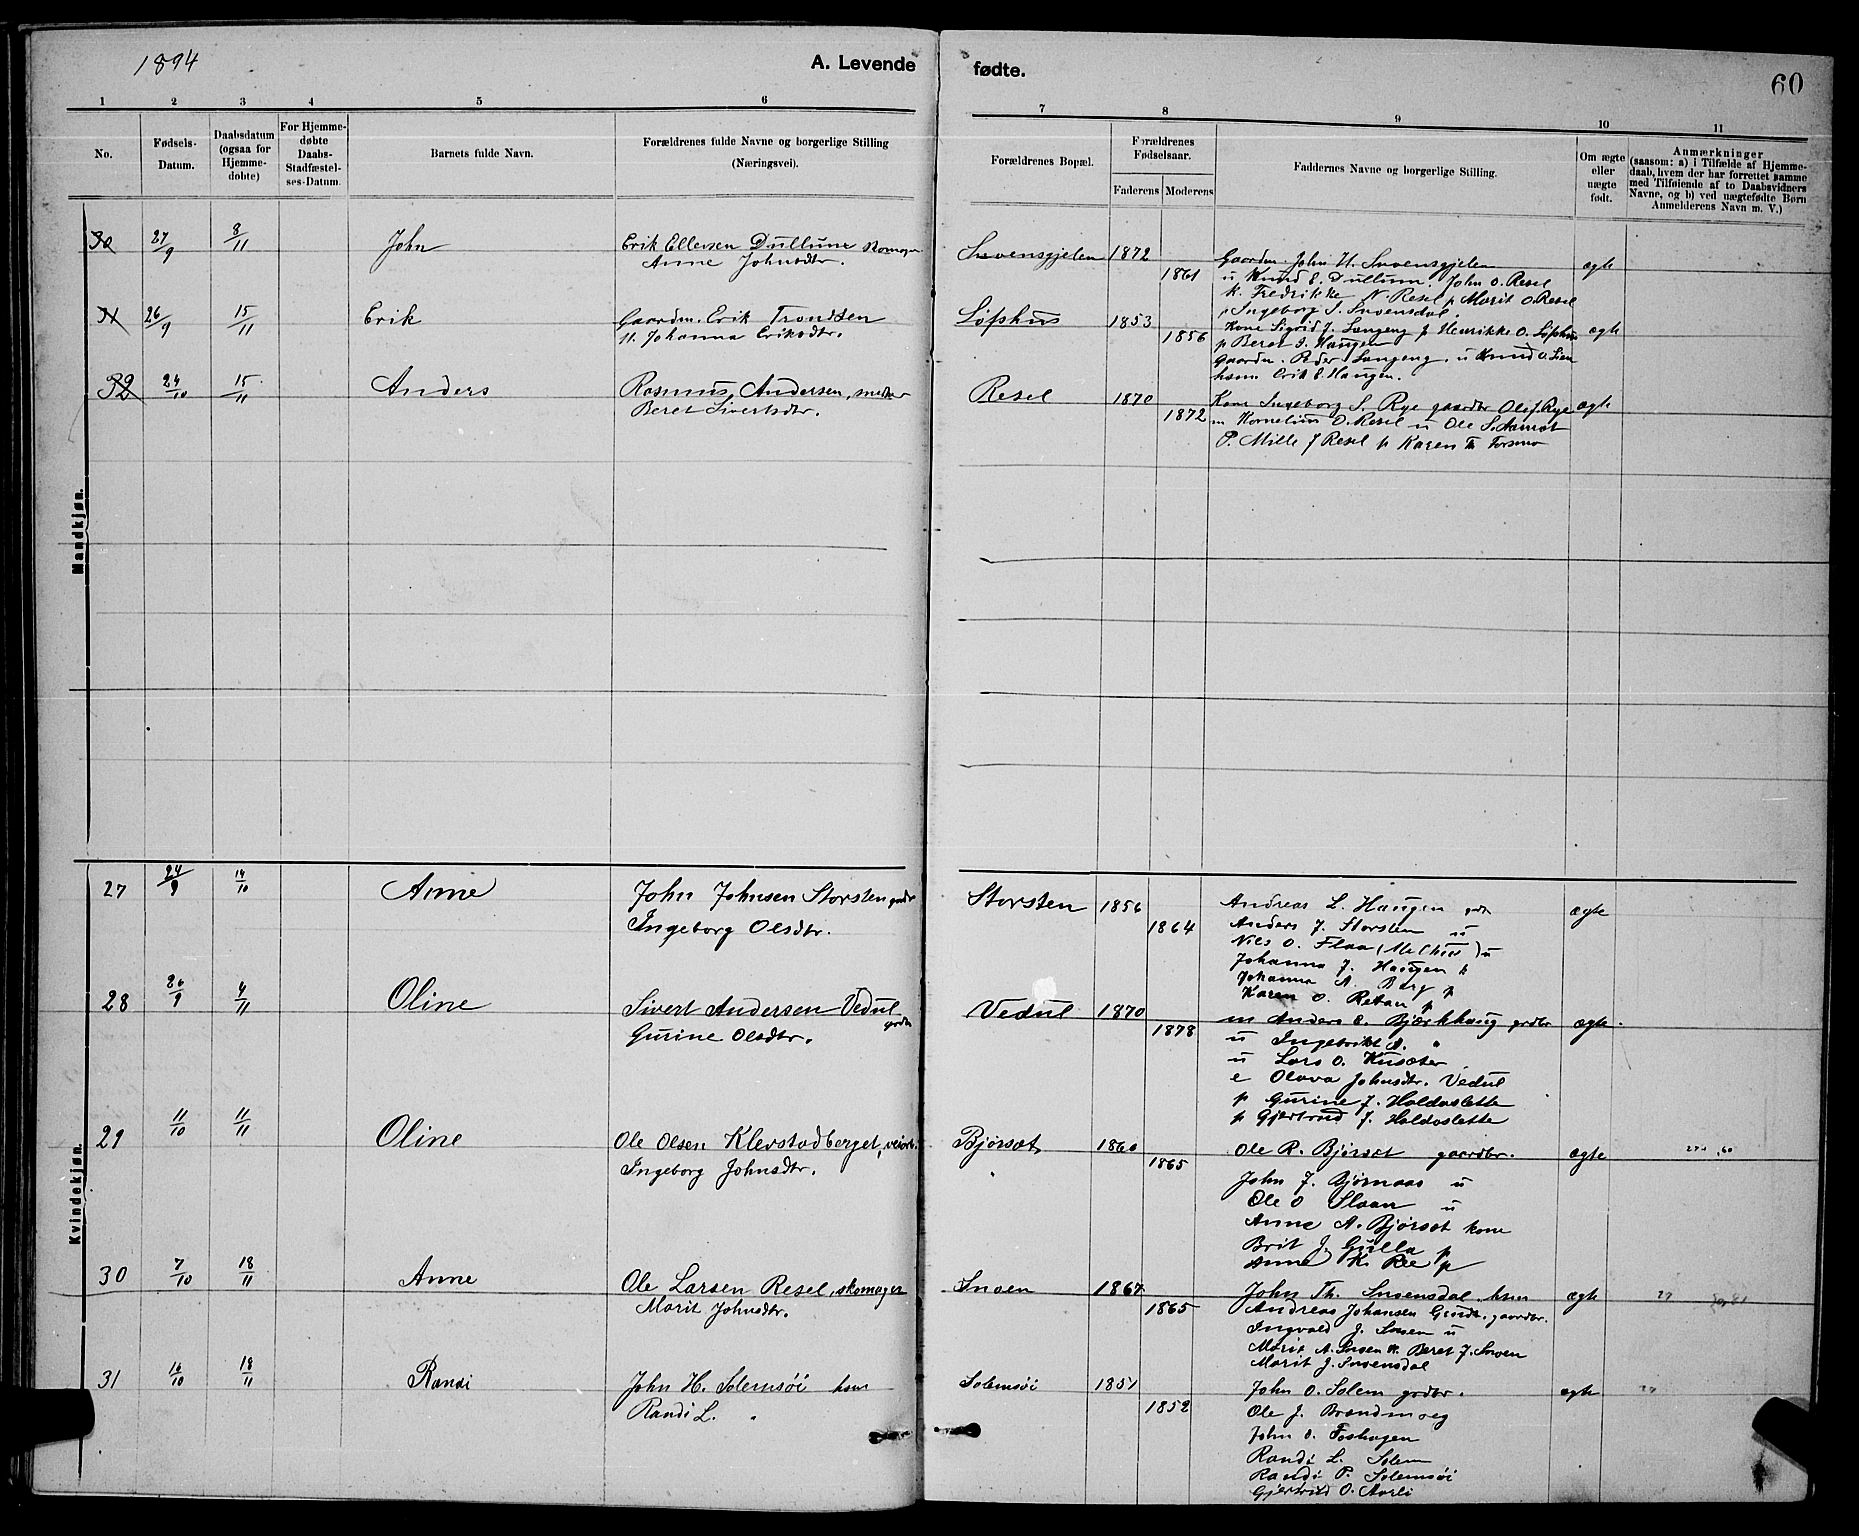 1894
A. Levende fødte.
60
1 2 3 4 5 6 7 8 9 10 11
No.
Fødsels-Datum.
Daabsdatum (ogsaa for Hjemme-døbte)
For Hjemme-døbte Daabs-Stadfæstel-ses-Datum.
Barnets fulde Navn.
Forældrenes fulde Navne og borgerlige Stilling (Næringsvei).
Forældrenes Bopæl.
Forældrenes Fødselsaar.
Faderens Moderens
Faddernes Navne og borgerlige Stilling.
Om ægte eller uægte født.
Anmærkninger (saasom: a) i Tilfælde af Hjemme-daab, hvem der har forrettet samme med Tilføiende af to Daabsvidners Navne, og b) ved uægtefødte Børn Anmelderens Navn m. V.)
Mandkjøn.
30 27/9 8/11 John Erik Ellevsen Dullum skomager Svensgjelen 1872
Anne Johnsdtr. 1861
Gaardm. John H. Svensgjelen ægte
u Knud E. Dullum. John O. Resel
k. Fredrikke N. Resel p Marit O. Resel
p Ingeborg S. Snoensdal.
31 26/9 15/11 Erik Gaardm. Erik Trondsen Løfshus 1853
H. Johanna Eriksdtr. 1856
Kone Sigrid J. Langeng p Henrikke O. Løfshus ægte
p Beret I. Haugen
Gaardm. Peder Langeng. u Knud O. Lien
husm Erik E. Haugen.
32 24/10 15/11 Anders Rasmus Andersen, smed Resel 1870
Beret Sivertsdtr. 1872
Kone Ingeborg S. Rye gaardbr Ole J. Rye ægte
m Kornelius O. Resel u Ole S. Aamot
P. Mille J Resel p Karen Th Forsmo
Kvindekjøn.
27 24/9 14/10 Anne John Johnsen Storsten grdbr Storsten 1856
Ingeborg Olsdtr. 1864
Andreas L. Haugen grdb ægte
Anders J. Storsten u
Nils O. Flaa (Melhus) u
Johanna J. Haugen p
Johanna A. Berg p
Karen O. Retan p
28 26/9 4/11 Oline Sivert Andersen Vedul grdbr Vedul 1870
Gurine Olsdtr. 1878
m Anders E. Bjerkhaug grdbr ægte.
u Ingebrikt A. "
u Lars O. Kusæter
e Olava Johnsdtr. Vedul
p Gurine J. Holdoslette
p Gjertrud J. Holdoslette
29 11/10 11/11 Oline Ole Olsen Klevstadberget, veiarb. Bjørsæt 1860
Ingeborg Johnsdtr. " 1865
Ole R. Bjørsæt gaardbr. ægte
John J. Bjørnaas u
Ole O Slaan u
Anne A. Bjørsæt kone
Brit J. Gulla p
Anne K. Ree p
30 7/10 18/11 Anne Ole Larsen Resel, skomager Snoen 1867
Marit Johnsdtr. 1865
John Th. Snoensdal husm ægte 27
Andreas Johansen gaardbr.
Ingvald J. Snoen u
Marit A. Snoen k. Beret J. Snoen
Marit J. Snoensdal
31 16/10 18/11 Randi John H. Solemsøi husm Solemsøi 1851
Randi L. " 1852
John O. Solem grdbr. ægte 27
Ole J. Brandmoeg
John O. Foshagen
Randi L. Solem
Randi P. Solemsøi
Gjertrud O. Aarli